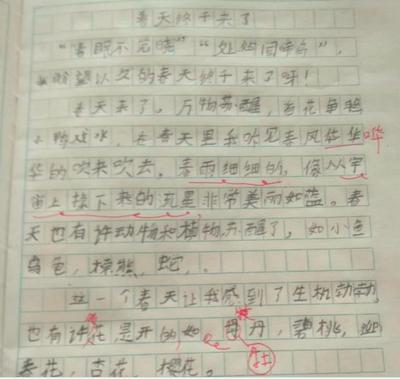 春天终于来了
"春眠不觉晓""处处闻啼鸟",
盼望以久的春天终于来了呀!
春天来了,万物苏醒,百花争艳
小鸭戏水,在春天里我听见春风华华 哗
华的吹来吹去。春雨细细的,像从宇
宙上接下来的流星,非常美丽如蓝。春
天也有许动物和植物苏醒了,如小鱼
乌龟,棕熊,蛇,。
这一个春天让我感到了生机勃勃,
也有许花是开的,如丹丹,碧桃,迎 牡
春花,杏花,樱花。